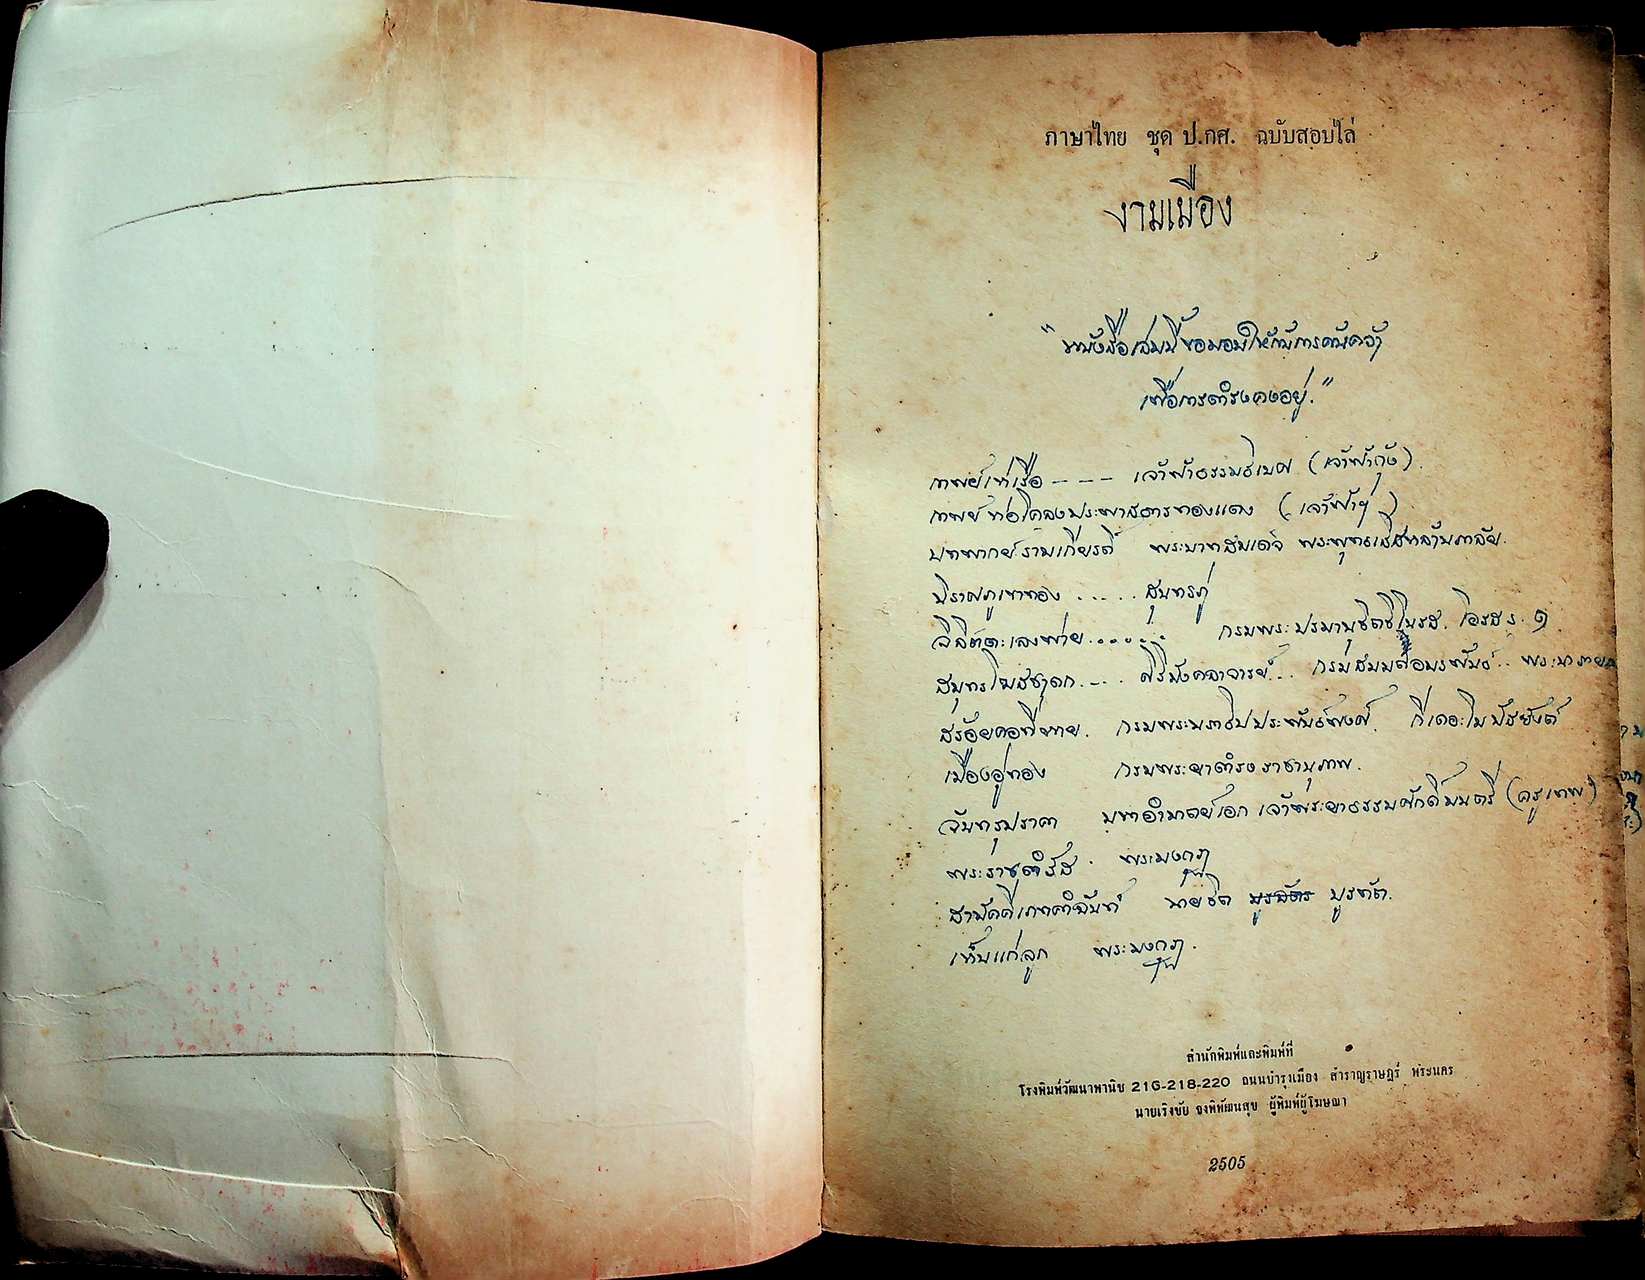 ภาษาไทย ชุด ป.กศ. ฉบับสอบไล่
งามเมือง
"หนังสือเล่มนี้ขอมอบให้กับการค้นคว้า
เพื่อการดำรงคงอยู่."
กาพย์เห่เรือ - - - เจ้าฟ้าธรรมธิเบศ (เจ้าฟ้ากุ้ง).
กาพย์ห่อโคลงประพาสธารทองแดง (เจ้าฟ้าฯ)
บทพากย์รามเกียรติ์ พระบาทสมเด็จ พระพุทธเลิศหล้านภาลัย.
นิราศภูเขาทอง ..... สุนทรภู่
ลิลิตตะเลงพ่าย ...... กรมพระปรมานุชิตชิโนรส. โอรส ร. ๑
สมุทรโฆสชาดก .... ศิริมังคลาจารย์ .. กรมสมมตอมรพันธ์ .. พระนารายณ์
สร้อยคอที่หาย. กรมพระนราธิปประพันธ์พงศ์. กีเดอะโมปัสซังต์
เมืองอู่ทอง กรมพระยาดำรงราชานุภาพ.
จันทรุปราคา มหาอำมาตย์เอก เจ้าพระยาธรรมศักดิ์มนตรี (ครูเทพ)
พระราชดำรัส พระมงกุฎ
สามัคคีเภทคำฉันท์ นายชิต บุรทัต.
เห็นแก่ลูก พระมงกุฎ.
สำนักพิมพ์และพิมพ์ที่
โรงพิมพ์วัฒนาพานิช 216-218-220 ถนนบำรุงเมือง สำราญราษฎร์ พระนคร
นายเริงชัย จงพิพัฒนสุข ผู้พิมพ์ผู้โฆษณา
2505